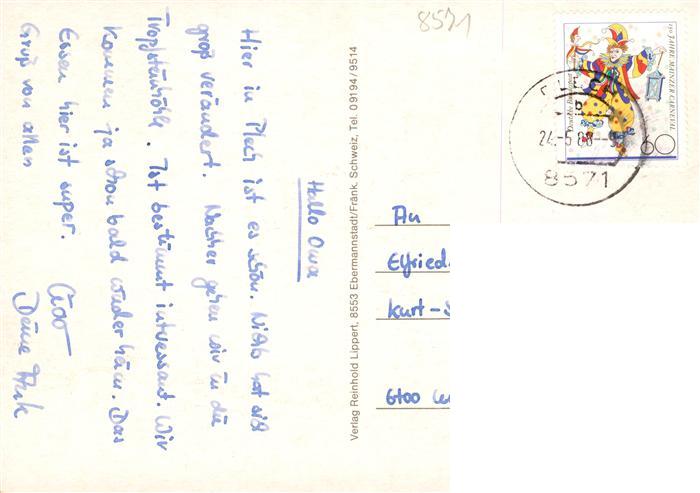 Hallo Oma
Hier in Plech ist es schön. Nichts hat sich
groß verändert. Nachher gehen wir in die
Tropfsteinhöhle. Ist bestimmt intressant. Wir
kommen ja schon bald wieder heim. Das
Essen hier ist super.
Gruß von allen
Deine
Verlag Reinhold Lippert, 8553 Ebermannstadt/Fränk. Schweiz, Tel. 09194/9514
8571
150 JAHRE MAINZER CARNEVAL
Deutsche Bundespost
60
24.-5.88
8571
An
Elfried
Kurt-S
6400